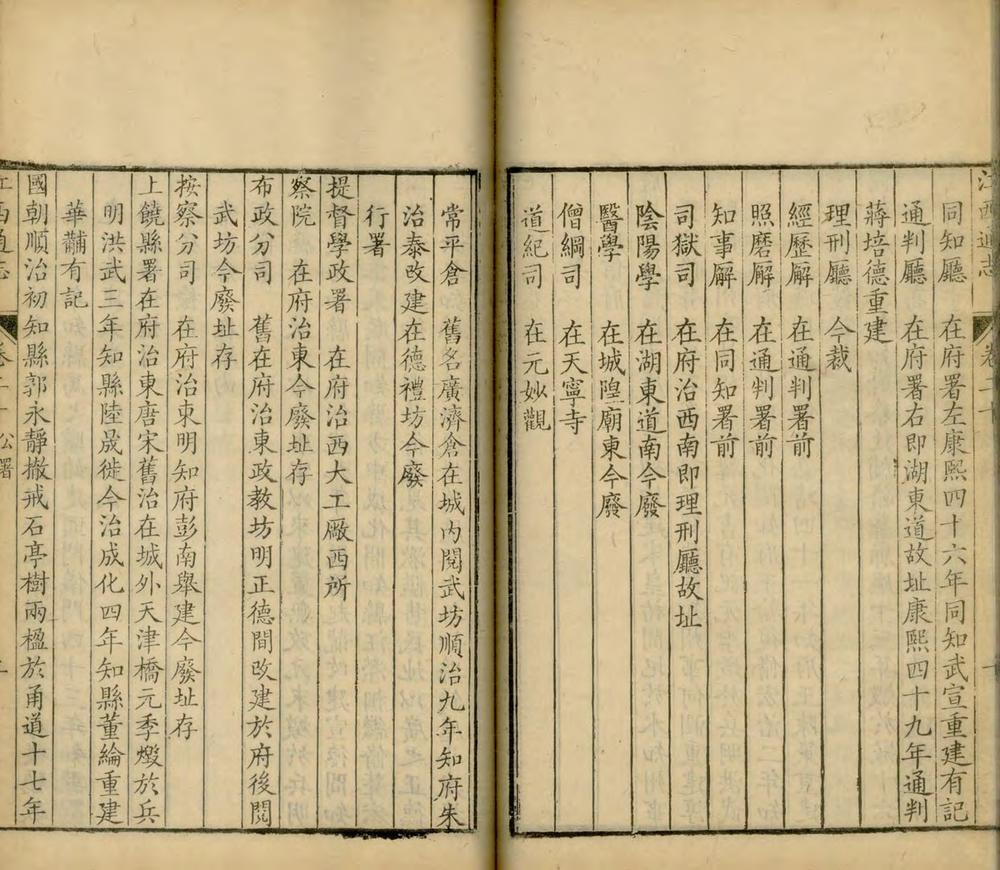 江西通志　卷二十
同知廳　在府署左康熙四十六年同知武宣重建有記
通判廳　在府署右即湖東道故址康熙四十九年通判
蔣培德重建
理刑廳　今裁
經歷廨　在通判署前
照磨廨　在通判署前
知事廨　在同知署前
司獄司　在府治西南即理刑廳故址
陰陽學　在湖東道南今廢
醫學　在城隍廟東今廢
僧綱司　在天寧寺
道紀司　在元妙觀
常平倉　舊名廣濟倉在城内閱武坊順治九年知府朱
治泰改建在德禮坊今廢
行署
提督學政署　在府治西大工廠西所
察院　在府治東今廢址存
布政分司　舊在府治東政教坊明正德間改建於府後閱
武坊今廢址存
按察分司　在府治東明知府彭南舉建今廢址存
上饒縣署在府治東唐宋舊治在城外天津橋元季燬於兵
明洪武三年知縣陸晟徙今治成化四年知縣董綸重建
華黼有記
國朝順治初知縣郭永靜撤戒石亭樹兩楹於甬道十七年
江西通志　卷二十　公署